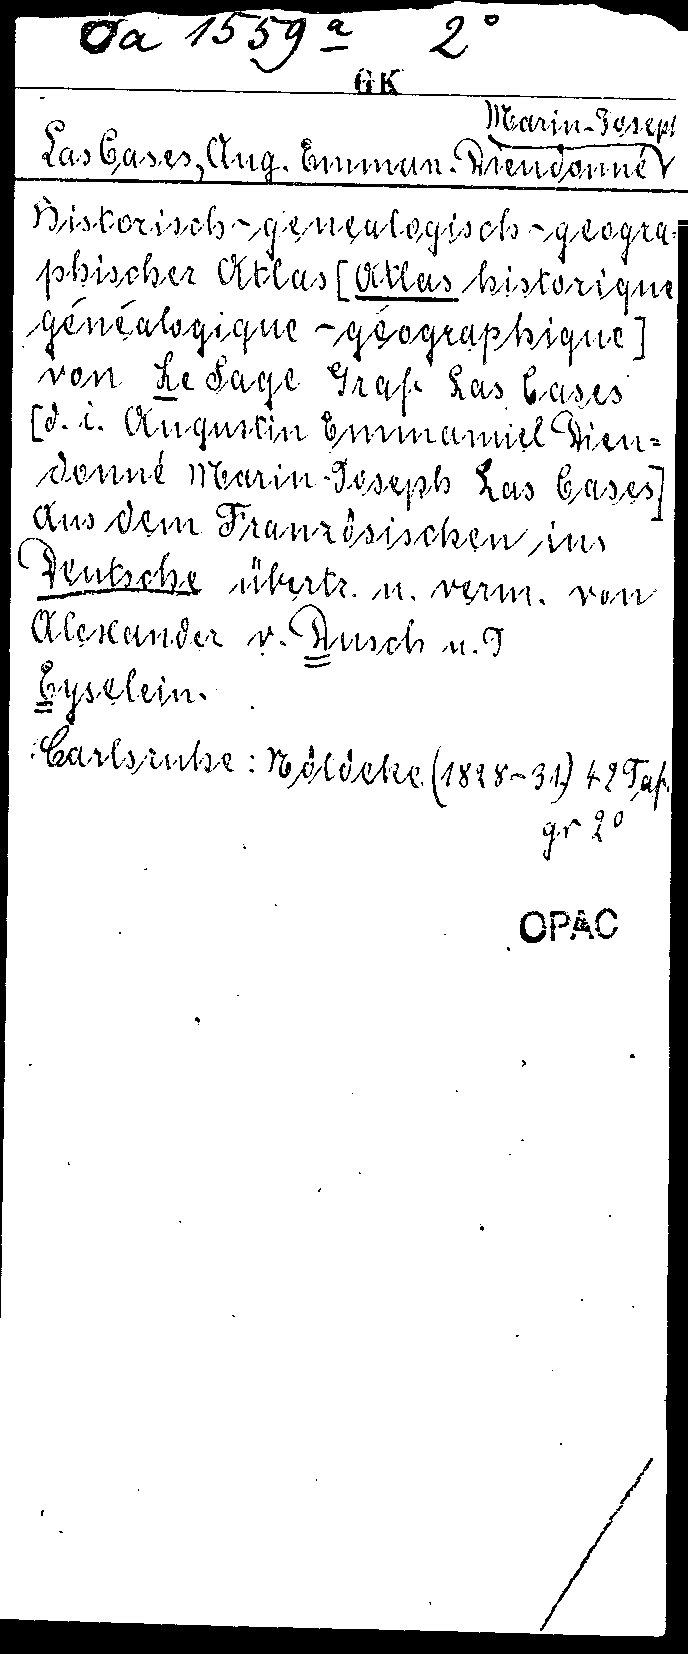 Oa 1559 a 2°
GK
Marin-Joseph
Las Cases, Aug. Emman. Dieudonné
Historisch-genealogisch-geogra-
phischer Atlas [Atlas historique
généalogique-géographique]
von Le Sage Graf Las Cases
[d. i. Augustin Emmanuel Dieu=
donné Marin-Joseph Las Cases]
Aus dem Französischen ins
Deutsche übertr. u. verm. von
Alexander v. Dusch u. J
Eyselein.
Carlsruhe: Nöldeke (1828-31) 42 Taf.
gr 2°
OPAC